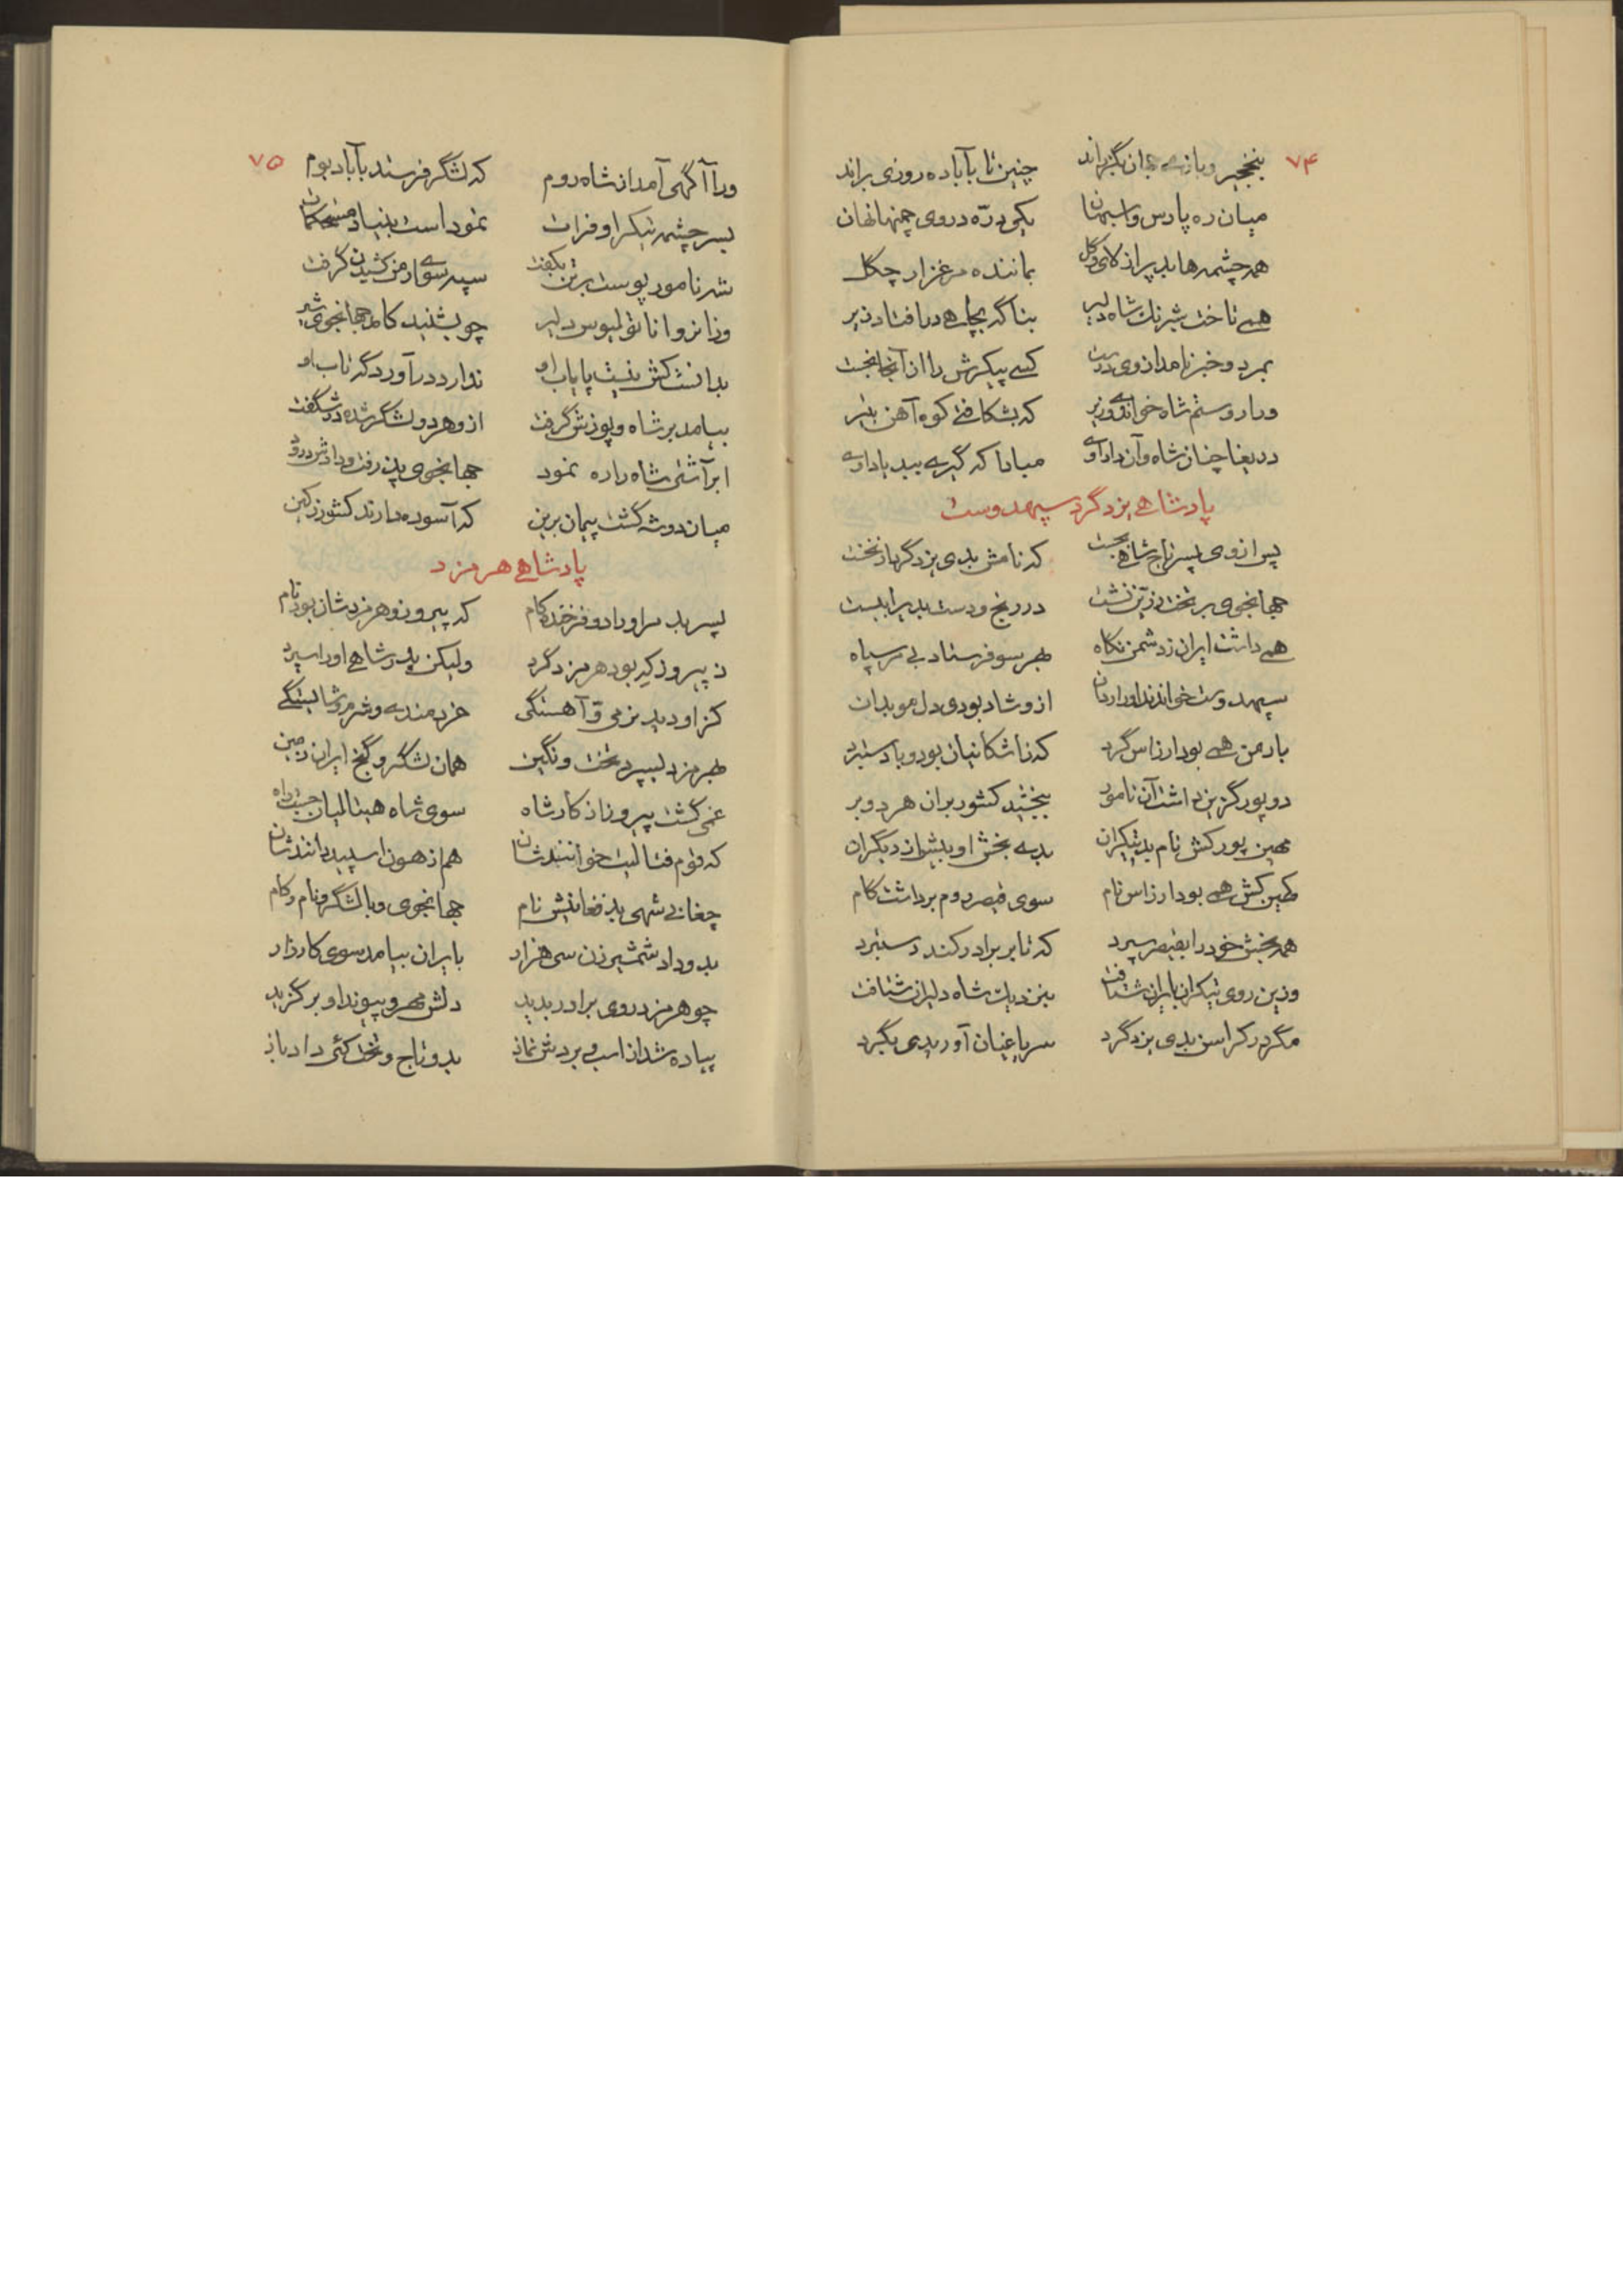 ۷۴
بنخجیر و بازی جهان بگذراند چنین تا بآباده روزی براند
میان ره پارس و اسپهان یکی درّه در وی چمنها نهان
همه چشمه‌ها بد پر از لای و گل بماننده مرغزار چگل
همی تاخت شبرنگ شاه دلیر بناگه بچاهی درافتاد زیر
بمرد و خبر نامد از وی درست کسی پیکرش را از آنجا نجست
ورا رستم شاه خواندی وزیر که بشکافتی کوه آهن بتیر
دریغا چنان شاه و آن داد اوی مبادا که گیری ببد یاد اوی
پادشاهی یزدگرد سپهدوست
پس از وی پسر تاج شاهی بجست که نامش بدی یزدگرد از نخست
جهانجوی بر تخت زرّین نشست در رنج و دست بدی را ببست
همی داشت ایران ز دشمن نگاه بهر سو فرستاد بی مر سپاه
سپهدوست خواندند او را ردان ازو شاد بودی دل موبدان
بارمن همی بود ارزاس گرد که زاشکانیان بود و با دستبرد
دو پور گزین داشت آن نامور ببخشید کشور بران هر دو بر
مهین پور کش نام بد تیگران بدی بخش او بیشتر از دیگران
کهین کش همی بود ارزاس نام سوی قیصر روم برداشت گام
همه بخش خود را بقیصر سپرد که تا بر برادر کند دستبرد
وزین روی تیگران بایران شتافت بنزدیک شاه دلیران شتافت
مگر در کراسن بدی یزدگرد سر یاغیان آوریدی بگرد
۷۵
ورا آگهی آمد از شاه روم که لشگر فرستد بآباد بوم
بسرچشمه تیگر او فرات نمود است بنیاد مستحکمات
شه نامور پوست بر تن بکفت سپه سوی ارمن کشیدن گرفت
وزانرو اناتولیوس دلیر چو بشنید کامد جهانجوی شیر
بدانست کش نیست پایاب او ندارد درآورد گه تاب او
بیامد بر شاه و پوزش گرفت ازو هر دو لشگر شده در شگفت
ابر آشتی شاه را ره نمود جهانجوی پذرفت و دادش درود
میان دو شه گشت پیمان برین که آسوده دارند کشور ز کین
پادشاهی هرمزد
پسر بد مر او را دو فرخنده کام که پیروز و هرمزد شان بود نام
ز پیروز که بود هرمزد گرد ولیکن پدر شاهی او را سپرد
کز او دید نرمی و آهستگی خردمندی و شرم و شایستگی
بهرمزد بسپرد تخت و نگین همان لشگر و گنج ایران زمین
غمی گشت پیروز از کار شاه سوی شاه هیتالیان جست راه
که قوم فتالیت خوانندشان هم از هون اسپید دانندشان
چغانی شهی بد فغانیش نام جهانجوی و با لشگر و نام و کام
بدو داد شمشیر زن سی هزار بایران بیامد سوی کارزار
چو هرمزد روی برادر بدید دلش مهر و پیوند او برگزید
پیاده شد از اسب و بردش نماز بدو تاج و تخت کئی داد باز